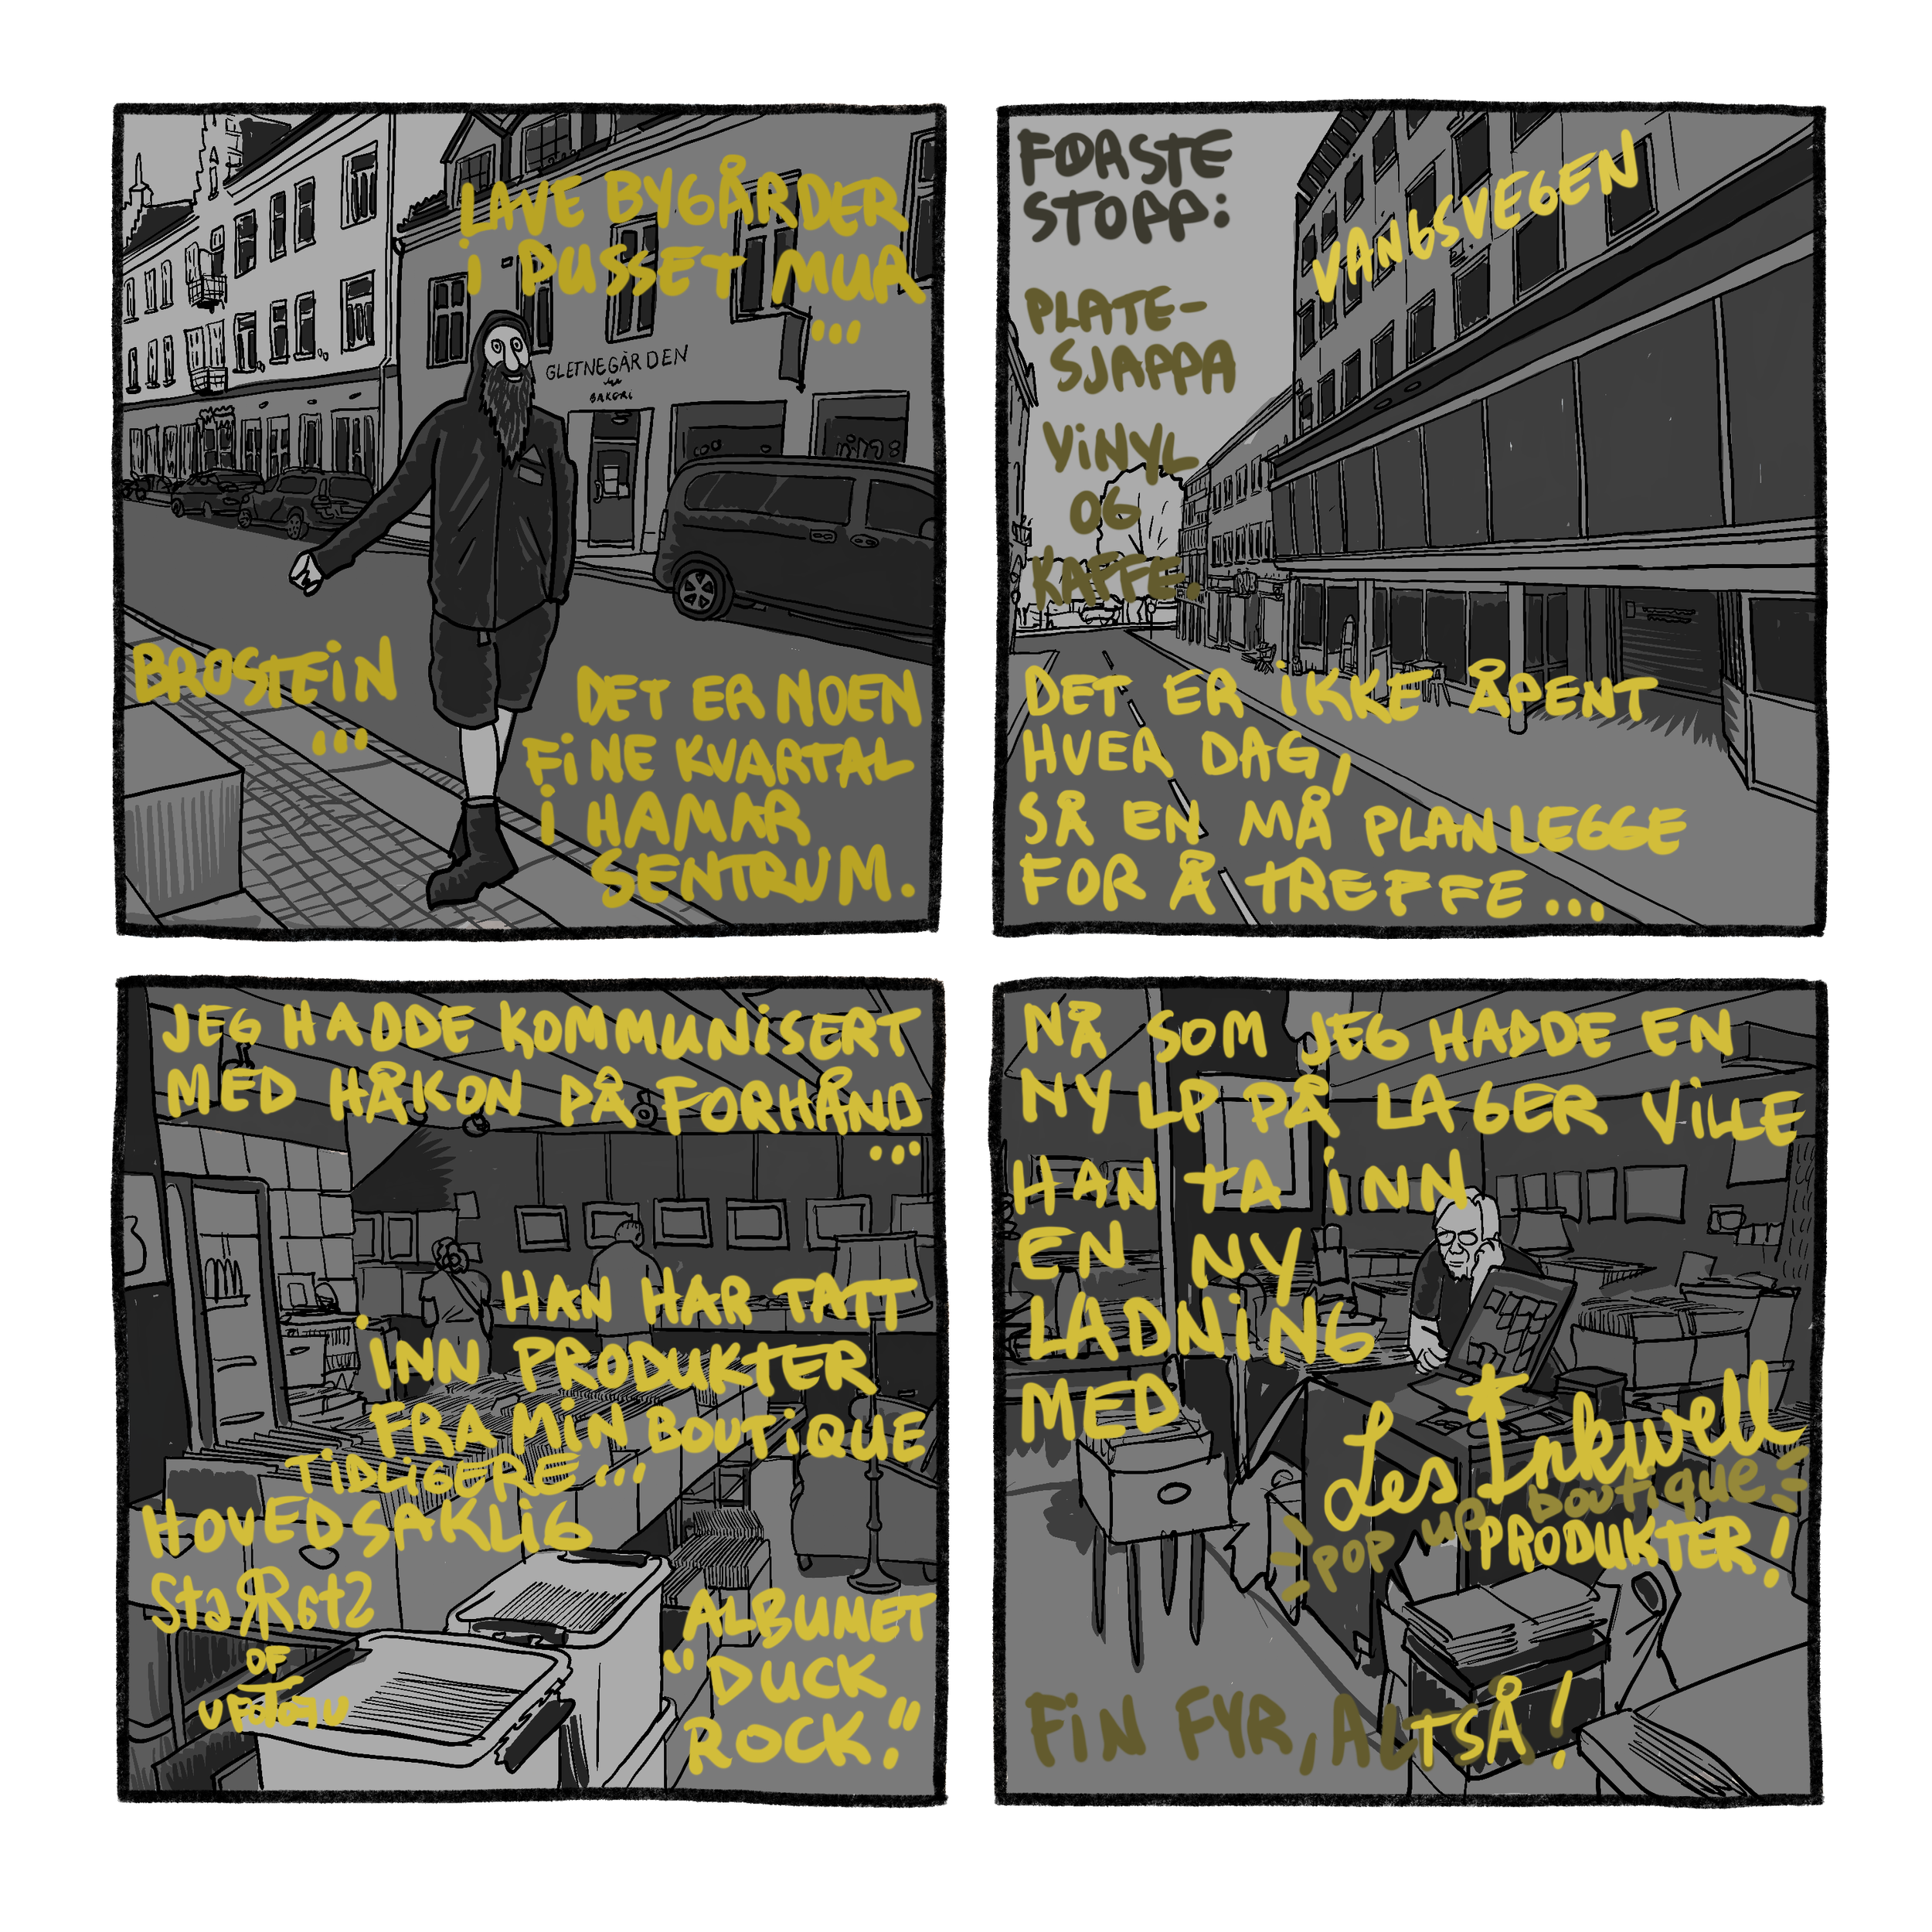 LAVE BYGÅRDER
I PUSSET MUR
...
GLETNEGÅRDEN
BAKERI
BROSTEIN
...
DET ER NOEN
FINE KVARTAL
I HAMAR
SENTRUM.
FØRSTE
STOPP:
VANGSVEGEN
PLATE-
SJAPPA
VINYL
OG
KAFFE.
DET ER IKKE ÅPENT
HVER DAG,
SÅ EN MÅ PLANLEGGE
FOR Å TREFFE...
JEG HADDE KOMMUNISERT
MED HÅKON PÅ FORHÅND
...
HAN HAR TATT
INN PRODUKTER
FRA MIN BOUTIQUE
TIDLIGERE...
HOVEDSAKLIG
OF
ALBUMET
"DUCK
ROCK."
NÅ SOM JEG HADDE EN
NY LP PÅ LAGER VILLE
HAN TA INN
EN NY
LADNING
MED
Les Inkwell
POP UP boutique
PRODUKTER!
FIN FYR, ALTSÅ!